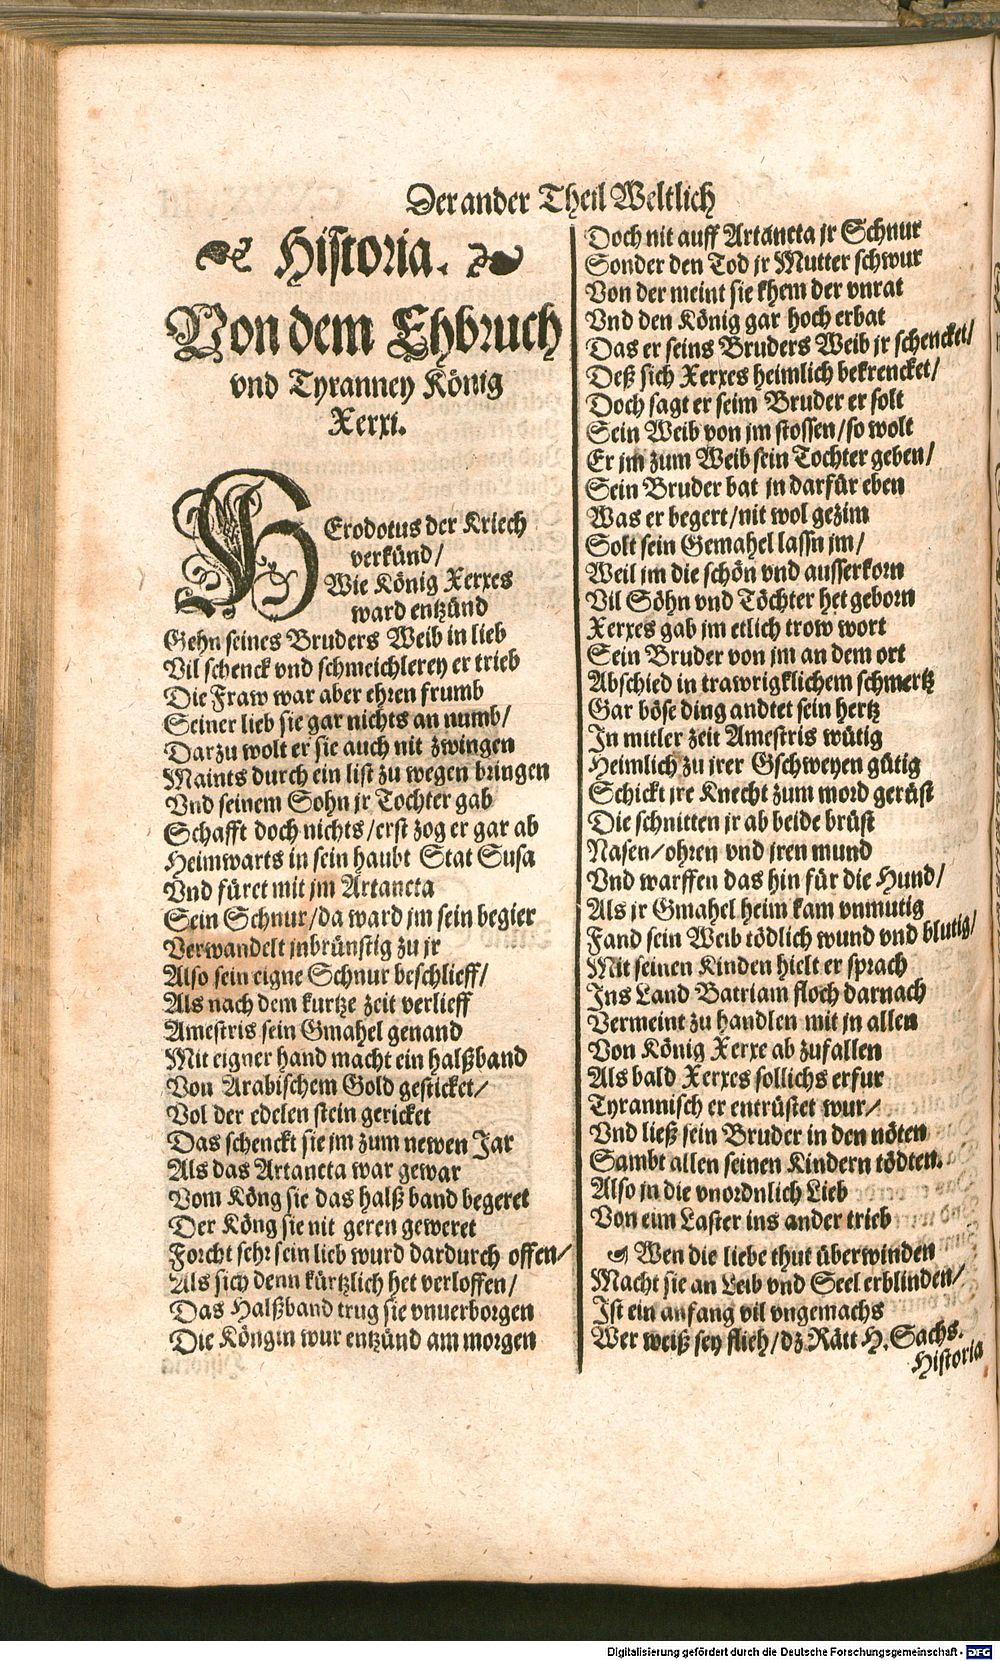 Der ander Theil Weltlich
Historia.
Von dem Ehbruch
vnd Tyranney König
Xerxi.
HErodotus der Kriech
verkünd/
Wie König Xerxes
ward entzünd
Gehn seines Bruders Weib in lieb
Vil schenck vnd schmeichlerey er trieb
Die Fraw war aber ehren frumb
Seiner lieb sie gar nichts an numb/
Darzu wolt er sie auch nit zwingen
Maints durch ein list zu wegen bringen
Vnd seinem Sohn jr Tochter gab
Schafft doch nichts/erst zog er gar ab
Heimwarts in sein haubt Stat Susa
Vnd füret mit jm Artancta
Sein Schnur/da ward jm sein begier
Verwandelt jnbrünstig zu jr
Also sein eigne Schnur beschlieff/
Als nach dem kurtze zeit verlieff
Amestris sein Gmahel genand
Mit eigner hand macht ein halßband
Von Arabischem Gold gesticket/
Vol der edelen stein gericket
Das schenckt sie jm zum newen Jar
Als das Artancta war gewar
Vom Köng sie das halß band begeret
Der Köng sie nit geren geweret
Forcht sehr sein lieb wurd dardurch offen/
Als sich denn kürtzlich het verloffen/
Das Halßband trug sie vnuerborgen
Die Köngin wur entzünd am morgen
Doch nit auff Artancta jr Schnur
Sonder den Tod jr Mutter schwur
Von der meint sie khem der vnrat
Vnd den König gar hoch erbat
Das er seins Bruders Weib jr schencket/
Deß sich Xerxes heimlich bekrencket/
Doch sagt er seim Bruder er solt
Sein Weib von jm stossen/so wolt
Er jm zum Weib sein Tochter geben/
Sein Bruder bat jn darfür eben
Was er begert/nit wol gezim
Solt sein Gemahel lassn jm/
Weil jm die schön vnd ausserkorn
Vil Söhn vnd Töchter het geborn
Xerxes gab jm etlich trow wort
Sein Bruder von jm an dem ort
Abschied in trawrigklichem schmertz
Gar böse ding andtet sein hertz
In mitler zeit Amestris wütig
Heimlich zu jrer Gschweyen gütig
Schickt jre Knecht zum mord gerüst
Die schnitten jr ab beide brüst
Nasen/ohren vnd jren mund
Vnd warffen das hin für die Hund/
Als jr Gmahel heim kam vnmutig
Fand sein Weib tödlich wund vnd blutig/
Mit seinen Kinden hielt er sprach
Ins Land Batriam floch darnach
Vermeint zu handlen mit jn allen
Von König Xerxe ab zufallen
Als bald Xerxes sollichs erfur
Tyrannisch er entrüstet wur/
Vnd ließ sein Bruder in den nöten
Sambt allen seinen Kindern tödten.
Also jn die vnordnlich Lieb
Von eim Laster ins ander trieb
Wen die liebe thut überwinden
Macht sie an Leib vnd Seel erblinden/
Ist ein anfang vil vngemachs
Wer weiß sey flieh/dz Rätt H. Sachs.
Historia
Digitalisierung gefördert durch die Deutsche Forschungsgemeinschaft - DFG